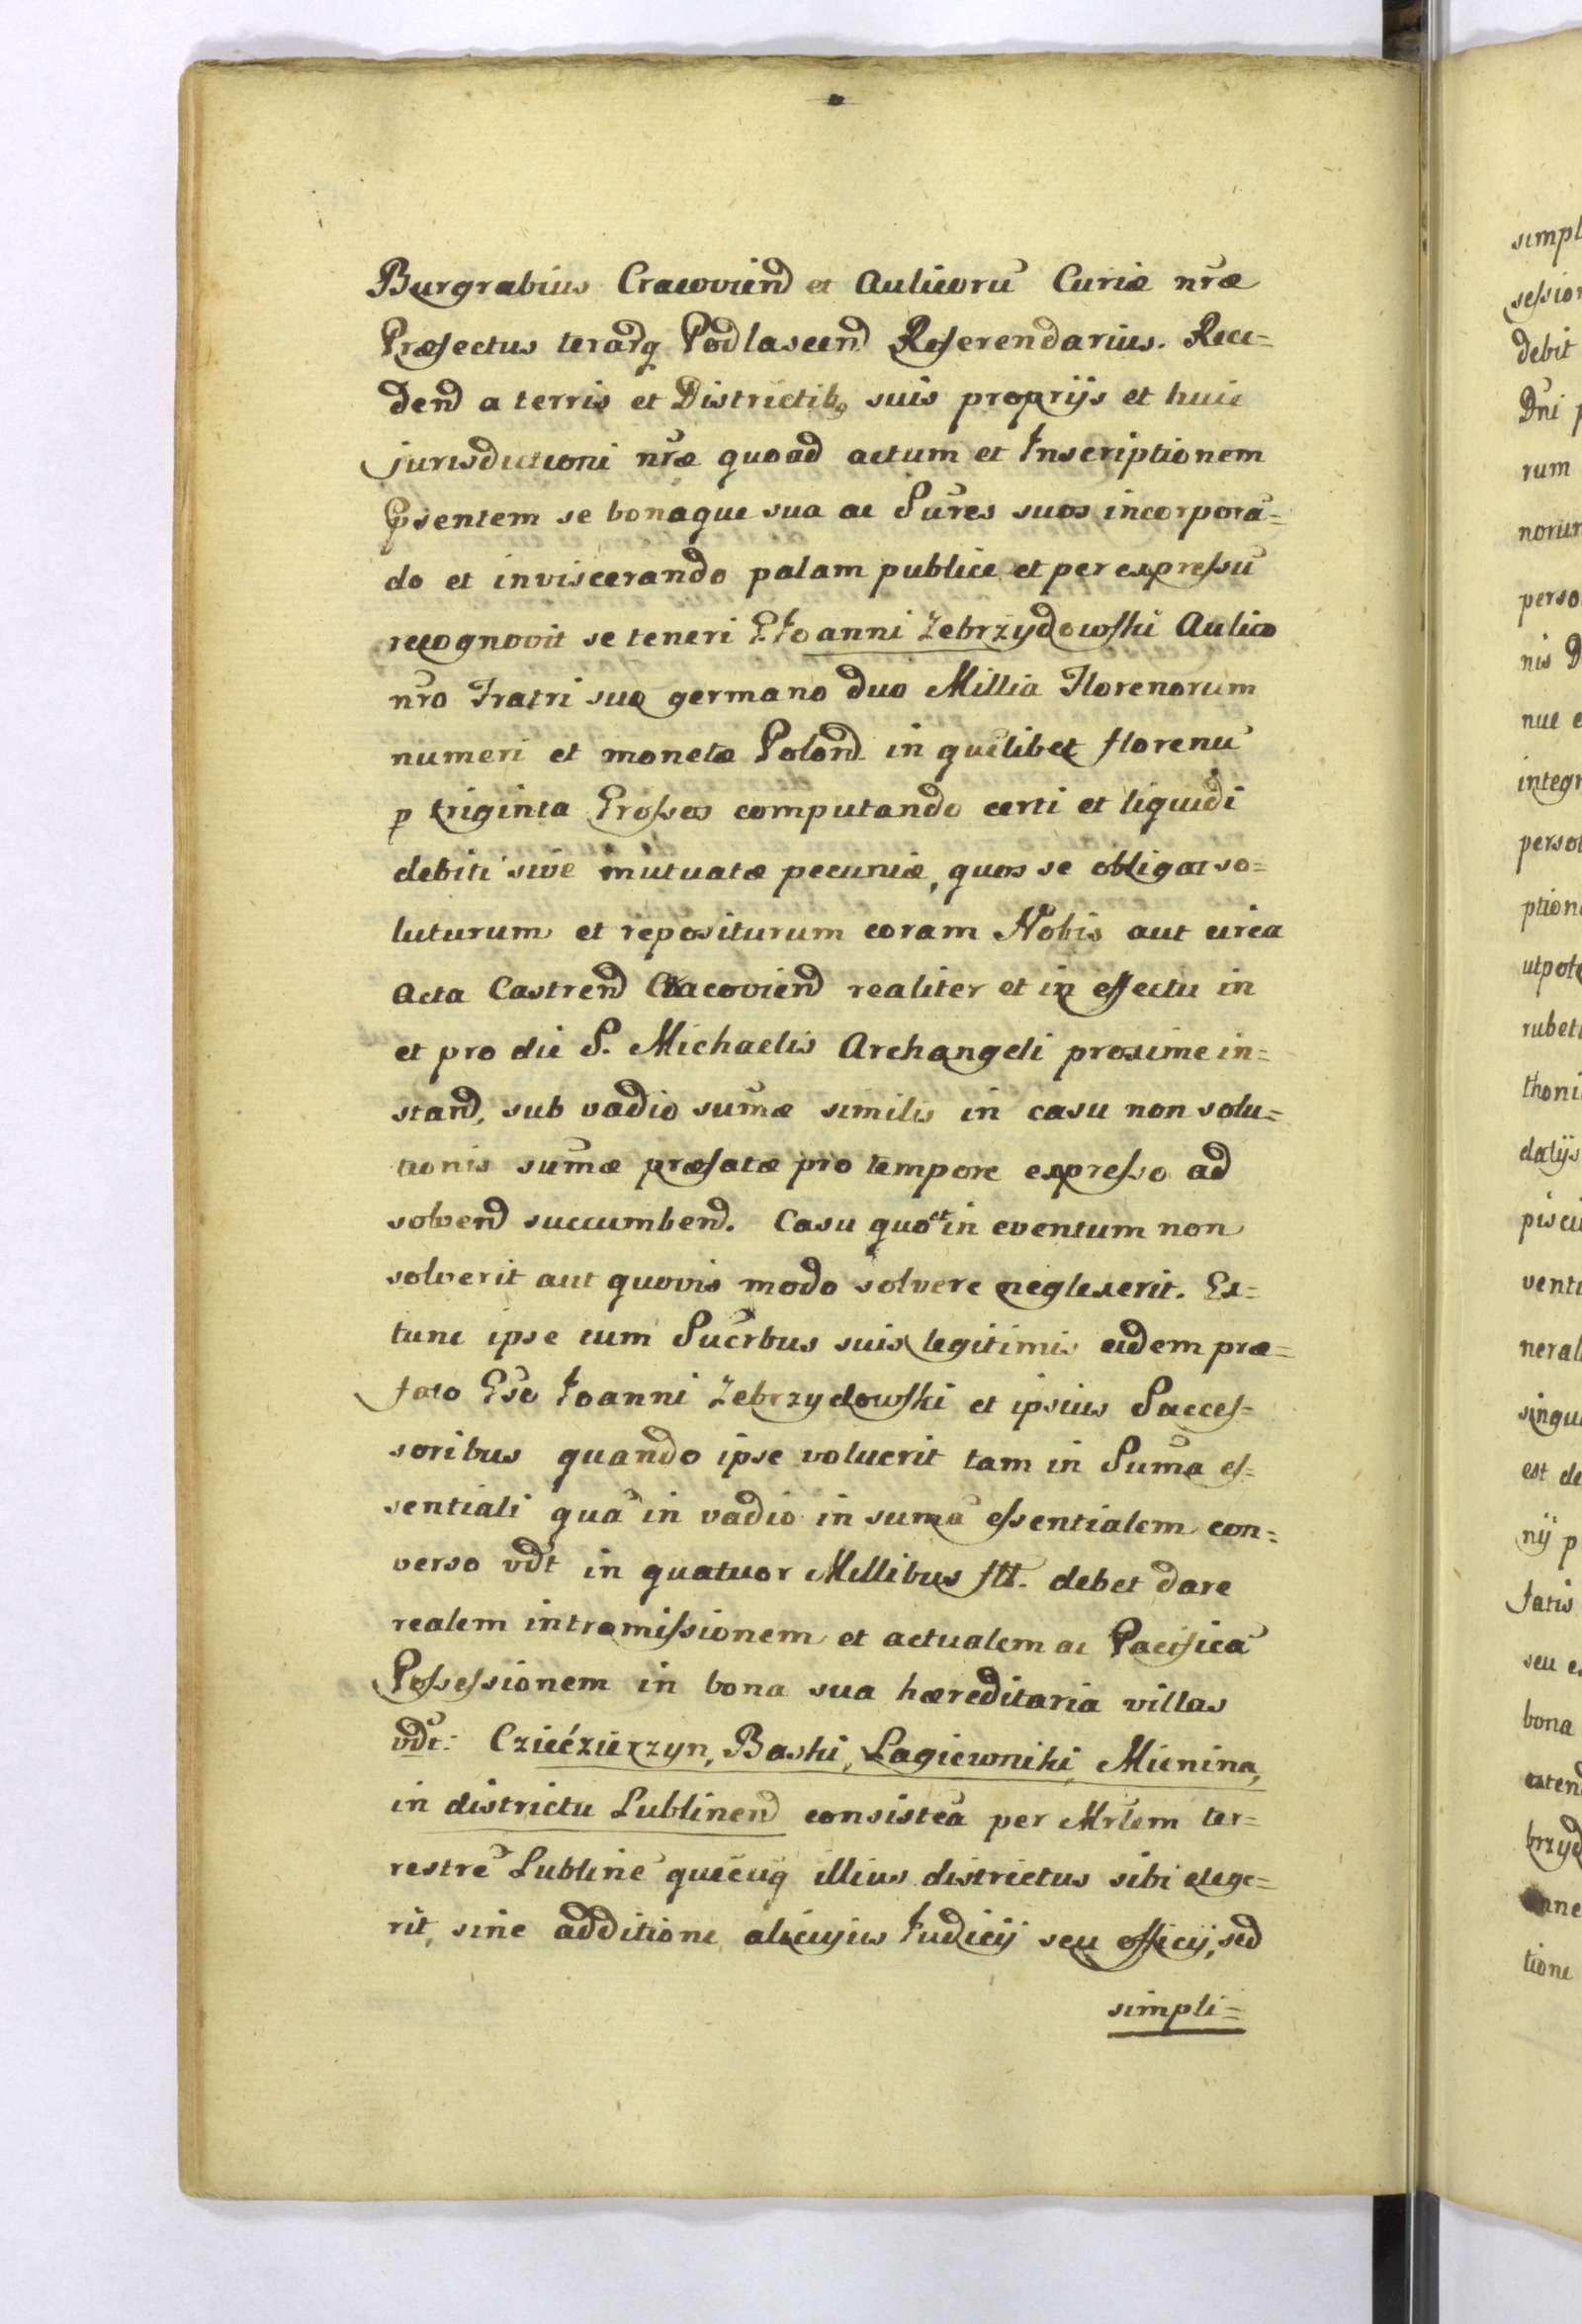 Burgrabius Cracovien̄d et Aulicorū Curiæ nr̄æ
Præfectus terar̄q Podlascen̄d Referendarius. Rece=
den̄d a terris et Districtib9 suis proprijs et huic
jurisdictioni nr̄æ quoad actum et Inscriptionem
p̄sentem se bonaque sua ac Sūres suos incorporā=
do et inviscerando palam publice et per expreſsū
recognovit se teneri G. Ioanni Zebrzydowſki Aulico
nr̄o Fratri suo germano duo Millia Florenorum
numeri et monetæ Polon̄d in quēlibet florenū
p triginta Groſsos computando certi et liquidi
debiti sive mutuatæ pecuniæ, quos se obligat so=
luturum et repositurum coram Nobis aut circa
Acta Castren̄d Cracovien̄d realiter et in effectu in
et pro die S. Michaelis Archangeli proxime in=
stan̄d, sub vadio sum̄æ similis in casu non solu=
tionis sum̄æ præfatæ pro tempore expreſso ad
solven̄d succumben̄d. Casu quo et in eventum non
solverit aut quovis modo solvere neglexerit. Ex=
tunc ipse cum Suc̄rbus suis legitimis eidem præ=
fato Gs̄o Ioanni Zebrzydowſki et ipsius Succeſ=
soribus quando ipse voluerit tam in Sum̄a eſ=
sentiali quā in vadio in sum̄ā eſsentialem con=
verso vd̄t in quatuor Millibus fll. debet dare
realem intromiſsionem et actualem ac Pacificā
Poſseſsionem in bona sua hæreditaria villas
vd̄t: Cziéczierzyn, Baski, Łagiewniki, Mienina,
in districtu Lublinen̄d consisteā per Mr̄lem ter=
restrē Lublinē quēcūq illius districtus sibi elege=
rit, sine additione alicujus Iudicij seu officij, sed
simpli=
simpl
seſsior
debit
Dn̄i p
rum
norun
perso
nis D
nue e
integr
person
ption
utpote
rubet
thoni
datijs
piscin
ventu
neral
singu
est de
nij p
fatis
seu e
bona
exten
brzyd
nne
tione